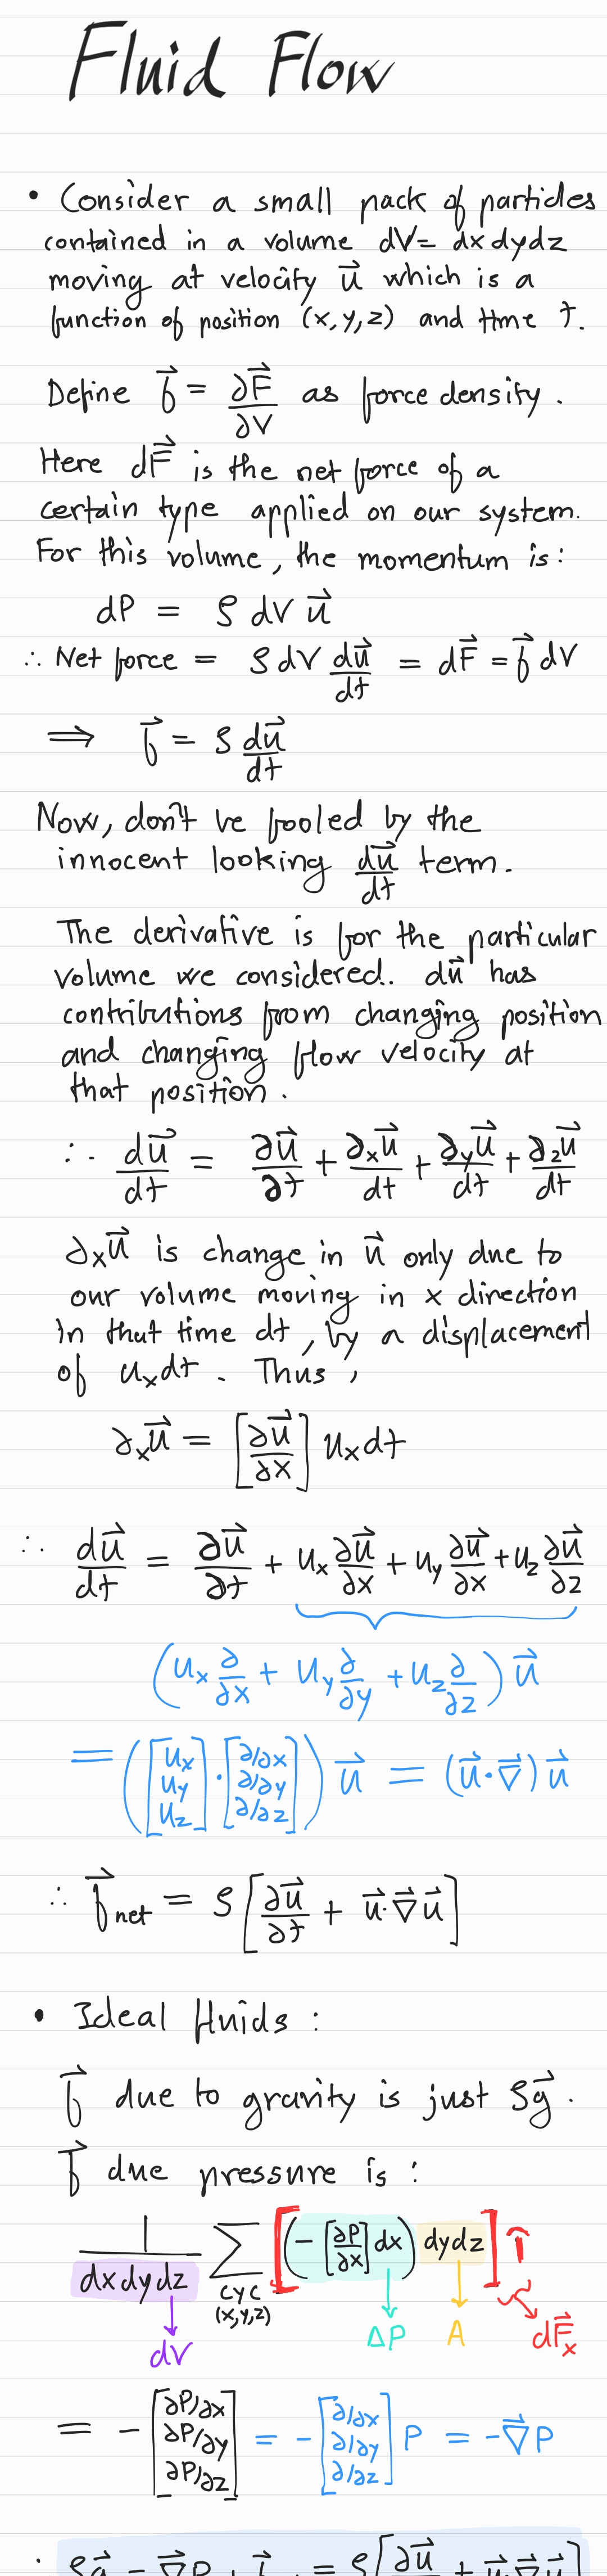 Fluid Flow
• Consider a small pack of particles
contained in a volume dV = dx dy dz
moving at velocity u⃗ which is a
function of position (x, y, z) and time t.
Define f⃗ = ∂F⃗/∂V as force density.
Here dF⃗ is the net force of a
certain type applied on our system.
For this volume, the momentum is:
dP = ρ dV u⃗
∴ Net force = ρ dV du⃗/dt = dF⃗ = f⃗ dV
⟹ f⃗ = ρ du⃗/dt
Now, don't be fooled by the
innocent looking du⃗/dt term.
The derivative is for the particular
volume we considered. du⃗ has
contributions from changing position
and changing flow velocity at
that position.
∴ du⃗/dt = ∂u⃗/∂t + ∂ₓu⃗/dt + ∂_y u⃗/dt + ∂_z u⃗/dt
∂ₓu⃗ is change in u⃗ only due to
our volume moving in x direction
in that time dt, by a displacement
of uₓdt. Thus,
∂ₓu⃗ = [∂u⃗/∂x] uₓdt
∴ du⃗/dt = ∂u⃗/∂t + uₓ ∂u⃗/∂x + u_y ∂u⃗/∂x + u_z ∂u⃗/∂z
(uₓ ∂/∂x + u_y ∂/∂y + u_z ∂/∂z) u⃗
= ([uₓ u_y u_z] · [∂/∂x ∂/∂y ∂/∂z]) u⃗ = (u⃗·∇⃗) u⃗
∴ f⃗net = ρ[∂u⃗/∂t + u⃗·∇⃗u⃗]
• Ideal fluids:
f⃗ due to gravity is just ρg⃗.
f⃗ due pressure is:
1/(dx dy dz) ∑ cyc (x,y,z) [(-[∂P/∂x] dx) dy dz] î
dV ΔP A dF⃗ₓ
= -[∂P/∂x ∂P/∂y ∂P/∂z] = -[∂/∂x ∂/∂y ∂/∂z] P = -∇⃗P